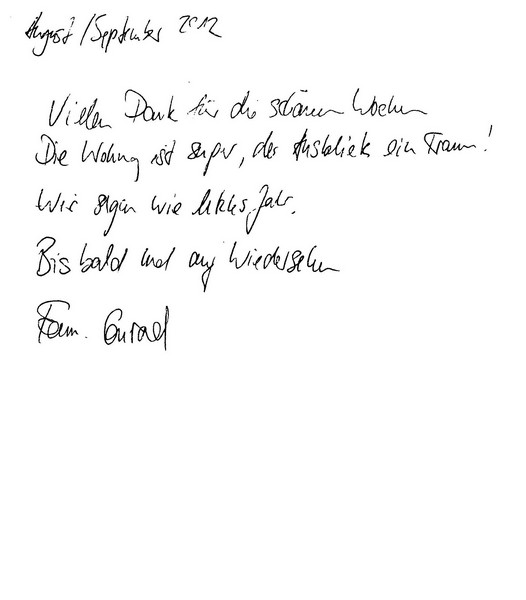 August/September 2012
Vielen Dank für die schönen Wochen
Die Wohnung ist super, der Ausblick ein Traum!
Wir sagen wie letztes Jahr.
Bis bald und auf Wiedersehen
Fam. Conrad